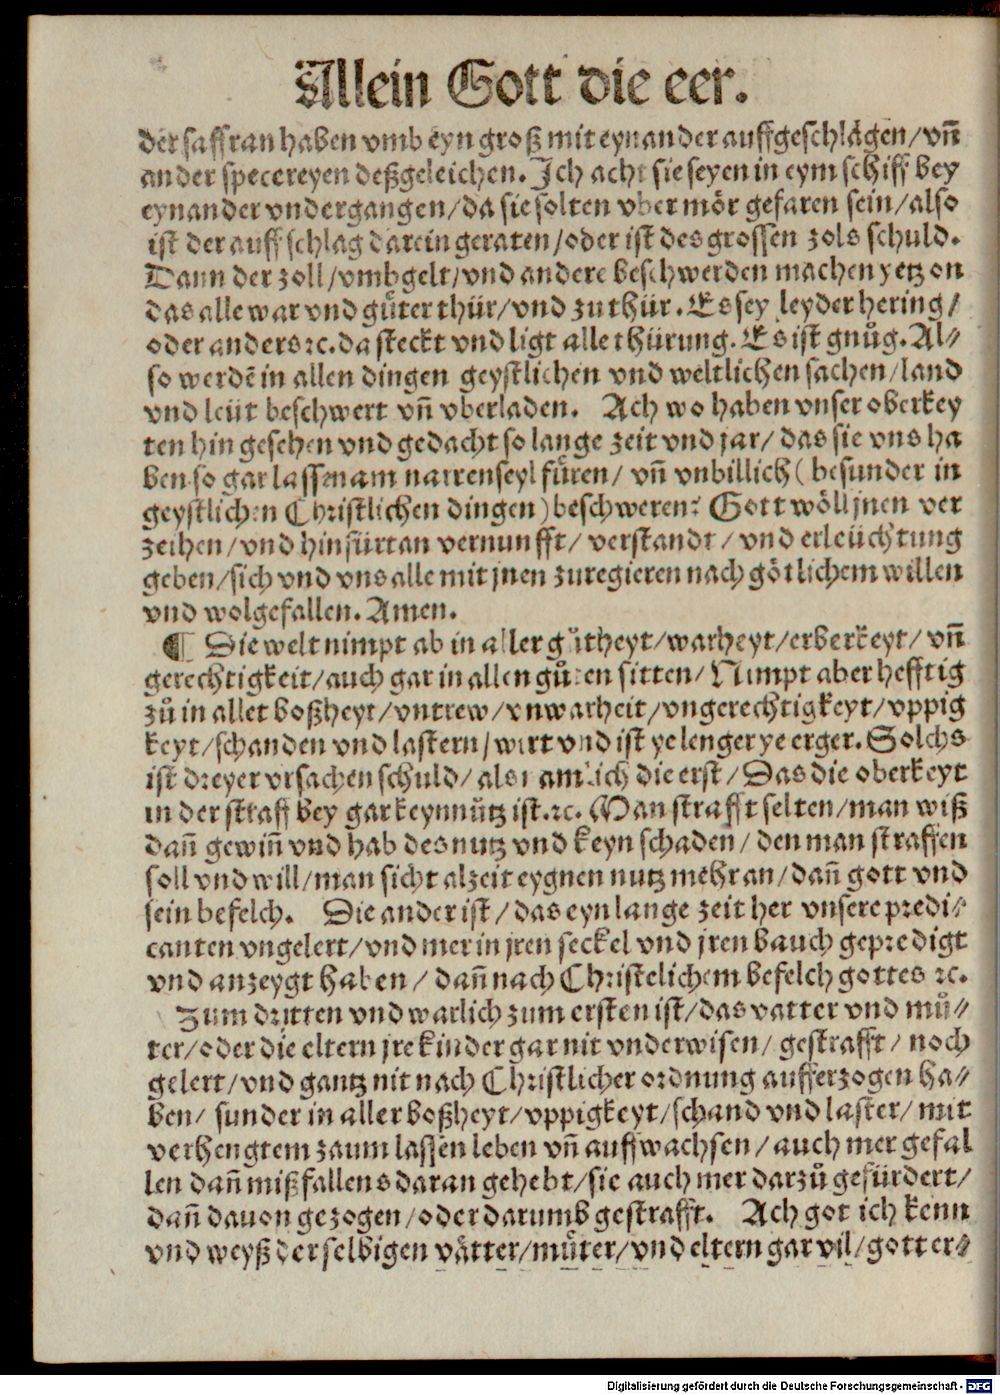 Allein Gott die eer.
der saffran haben vmb eyn groß mit eynander auffgeschlagen/ vñ
ander specereyen deßgeleichen. Jch acht sie seyen in eym schiff bey
eynander vndergangen/ da sie solten vber mör gefaren sein/ also
ist der auffschlag darein geraten/ oder ist des grossen zols schuld.
Dann der zoll/ vmbgelt/ vnd andere beschwerden machen yetz on
das alle war vnd gůter thür/ vnd zu thür. Es sey leyder hering/
oder anders ꝛc. da steckt vnd ligt alle thürung. Es ist gnůg. Al⸗
so werdẽ in allen dingen geystlichen vnd weltlichen sachen/ land
vnd leüt beschwert vñ vberladen. Ach wo haben vnser oberkey
ten hin gesehen vnd gedacht so lange zeit vnd jar/ das sie vns ha
ben so gar lassen am narrenseyl füren/ vñ vnbillich ( besunder in
geystlichen Christlichen dingen ) beschweren? Gott wöll jnen ver
zeihen/ vnd hinfürtan vernunfft/ verstandt/ vnd erleüchtung
geben/ sich vnd vns alle mit jnen zuregieren nach götlichem willen
vnd wolgefallen. Amen.
¶ Die welt nimpt ab in aller gůtheyt/ warheyt/ erberkeyt/ vñ
gerechtigkeit/ auch gar in allen gůten sitten/ Nimpt aber hefftig
zů in aller boßheyt/ vntrew/ vnwarheit/ vngerechtigkeyt/ vppig
keyt/ schanden vnd lastern/ wirt vnd ist ye lenger ye erger. Solchs
ist dreyer vrsachen schuld/ als namlich die erst/ Das die oberkeyt
in der straff bey gar keynnütz ist. ꝛc. Man strafft selten/ man wiß
dañ gewiñ vnd hab des nutz vnd keyn schaden/ den man straffen
soll vnd will/ man sicht alzeit eygnen nutz mehr an/ dañ gott vnd
sein befelch. Die ander ist/ das eyn lange zeit her vnsere predi⸗
canten vngelert/ vnd mer in jren seckel vnd jren bauch gepredigt
vnd anzeygt haben/ dañ nach Christelichem befelch gottes ꝛc.
Zum dritten vnd warlich zum ersten ist/ das vatter vnd mů⸗
ter/ oder die eltern jre kinder gar nit vnderwisen/ gestrafft/ noch
gelert/ vnd gantz nit nach Christlicher ordnung aufferzogen ha⸗
ben/ sunder in aller boßheyt/ vppigkeyt/ schand vnd laster/ mit
verhengtem zaum lassen leben vñ auffwachsen/ auch mer gefal
len dañ mißfallens daran gehebt/ sie auch mer darzů gefürdert/
dañ dauon gezogen/ oder darumb gestrafft. Ach got ich kenn
vnd weyß derselbigen vätter/ můter/ vnd eltern gar vil/ gott er⸗
Digitalisierung gefördert durch die Deutsche Forschungsgemeinschaft - DFG